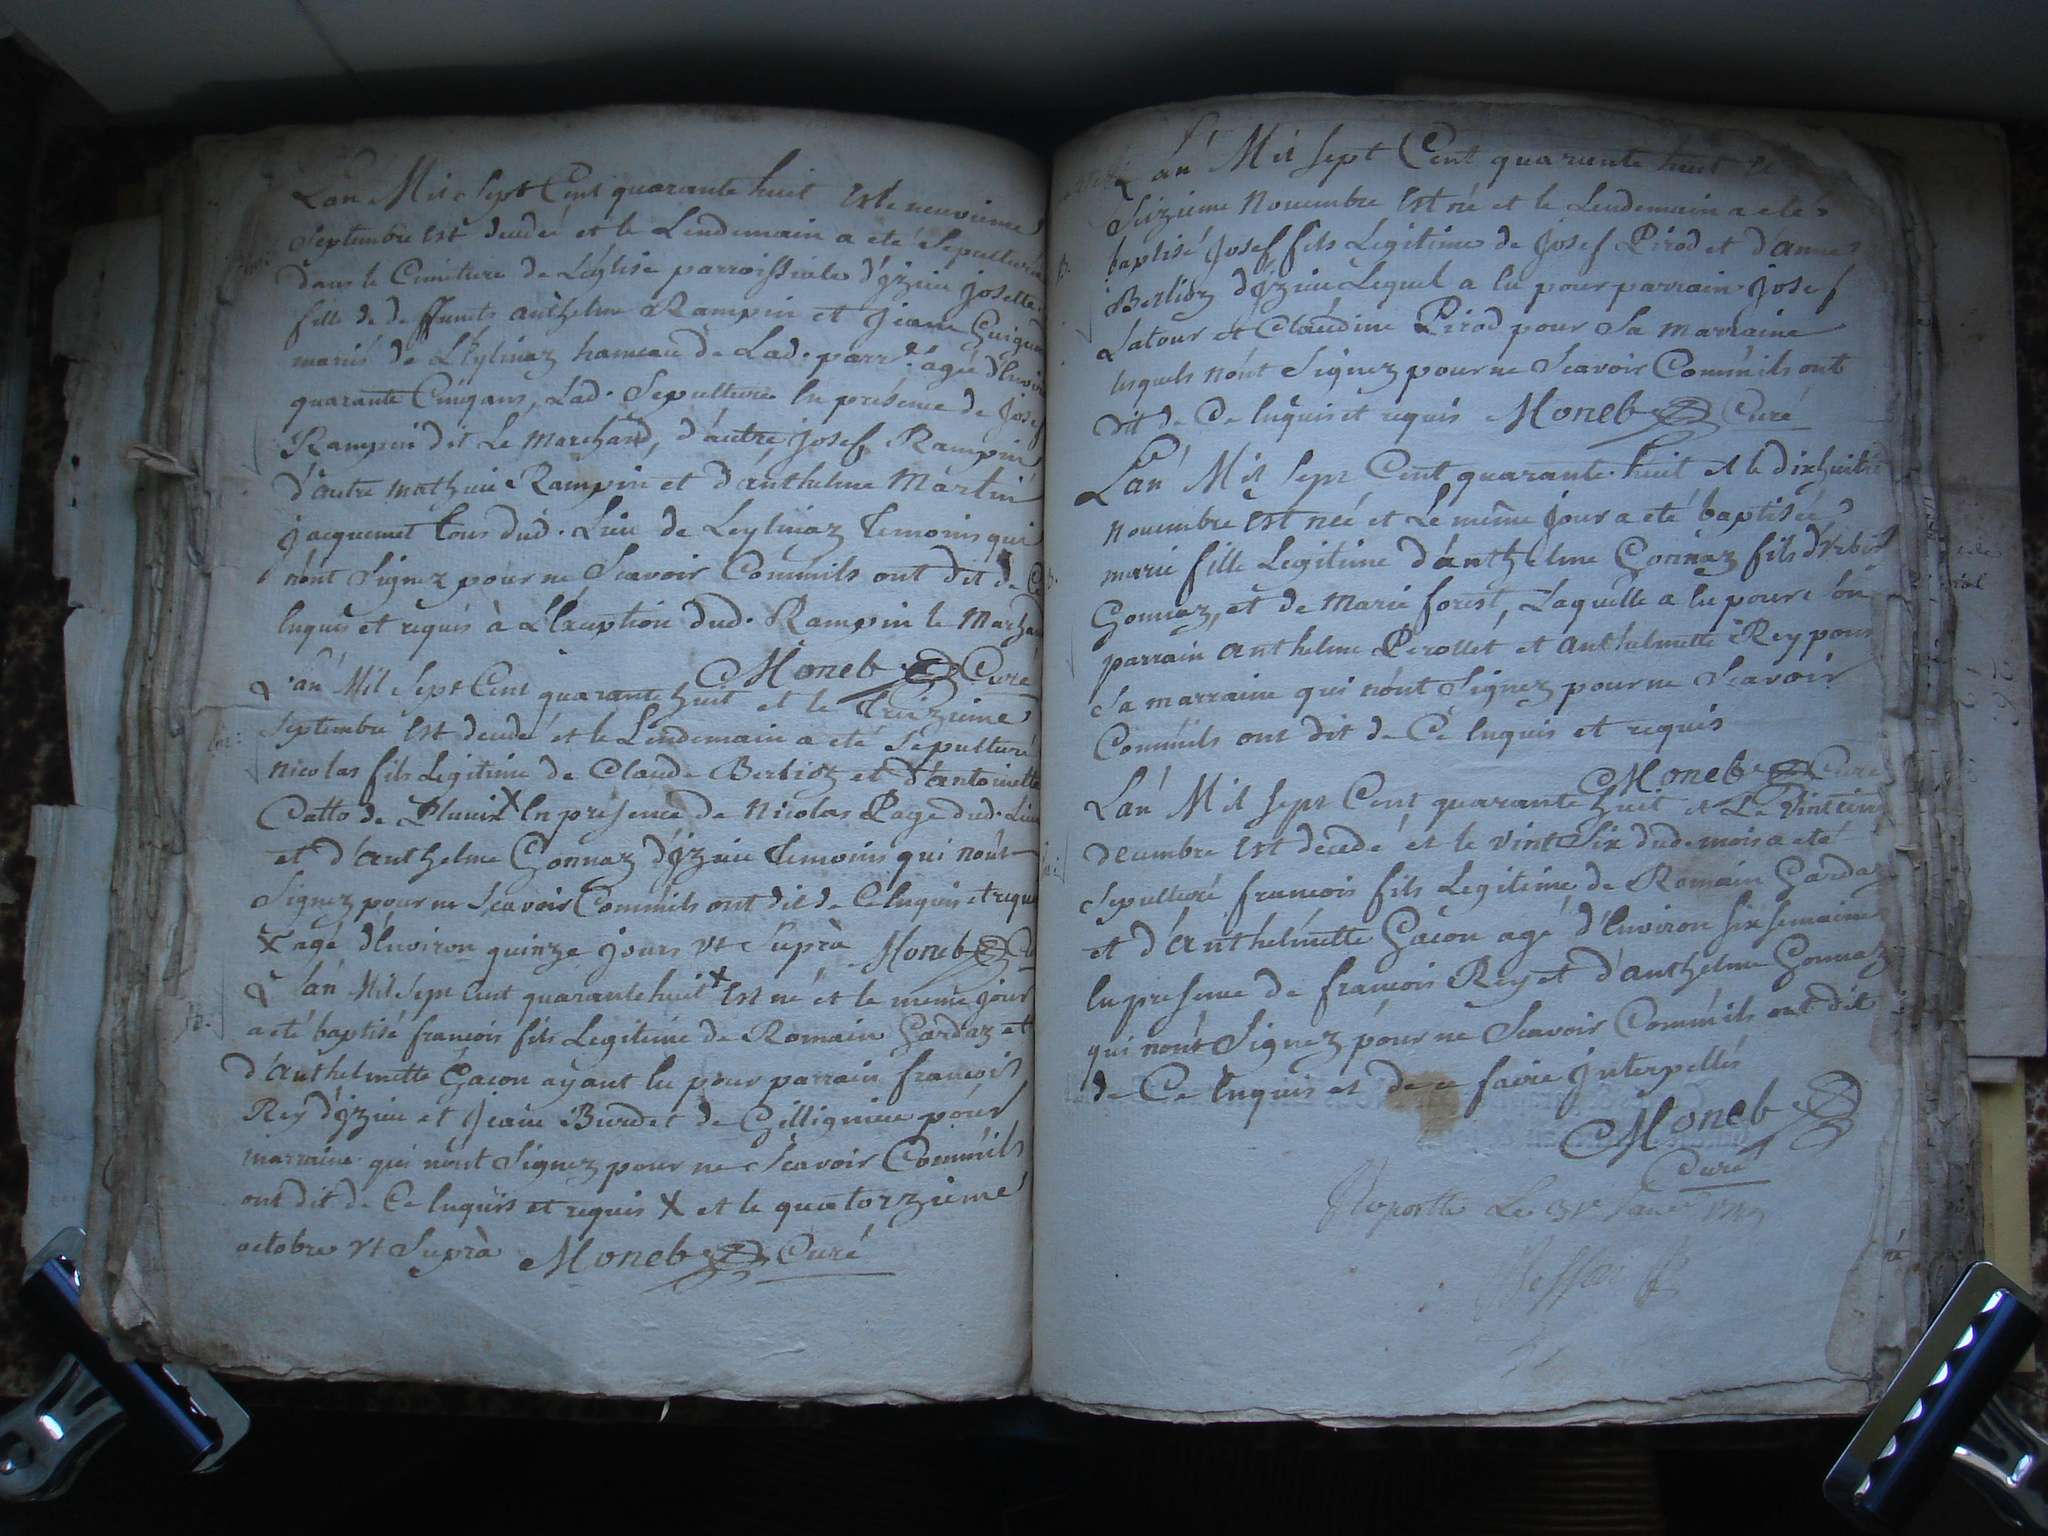 L'an Mil sept Cent quarante huit et le neuvieme
Septembre Est decedée et le Lendemain a eté Sepulturée
dans le Cimetiere de L'eglise parroissiale d'Izieu josette
fille de deffunts anthelme Rampin et jeane Guigue
mariés de Leylinaz hameau de Lad. parr.e agée d'Environ
quarante Cinq ans, Lad. Sepulture En présence de Josef
Rampin dit Le Marchand, d'autre josef Rampin
d'autre mathieu Rampin et d'anthelme Martin
jacquemet tous dud. Lieu de Leylinaz temoins qui
n'ont Signez pour ne Scavoir Comm'ils ont dit de Ce
Enquis et requis à L'Exception dud. Rampin le Marchand
Moneb Curé
L'an Mil Sept Cent quarante huit et le Treizieme
Septembre Est decedé et le Lendemain a eté Sepulturé
Nicolas fils Legitime de Claude Berlioz et d'antoinette
Catto de Pluvis X En presence de Nicolas Page dud. Lieu
et d'Anthelme Gonnaz d'Izieu temoins qui n'ont
Signez pour ne Scavoir Comm'ils ont dit de Ce Enquis et requis
X agé d'Environ quinze jours vt Suprà Moneb Curé
L'an Mil Sept Cent quarante huit X Est né et le meme jour
a eté baptisé francois fils Legitime de Romain Gardaz et
d'Anthelmette Gacon ayant Eu pour parrain francois
Rey d'Izieu et Jeane Burdet de Gillignieu pour
marraine qui n'ont Signez pour ne Scavoir Comm'ils
ont dit de Ce Enquis et requis X et le quatorzieme
octobre vt Suprà Moneb Curé
L'an Mil sept Cent quarante huit et
Seizieme Novembre Est né et le Lendemain a eté
baptisé Josef fils Legitime de Josef Pirod et d'anne
Berlioz d'Izieu Lequel a Eu pour parrain Josef
Latour et Claudine Pirod pour Sa marraine
lesquels n'ont Signez pour ne Scavoir Comm'ils ont
dit de Ce Enquis et requis Moneb Curé
L'an Mil Sept Cent quarante huit et le dixhuitie
Novembre Est née et Le même jour a eté baptisée
marie fille Legitime d'anthelme Gonnaz fils d'Vrbin
Gonnaz, et de Marie forest, Laquelle a Eu pour son
parrain anthelme Perollet et anthelmette Rey pour
Sa marraine qui n'ont Signez pour ne Scavoir
Comm'ils ont dit de Ce Enquis et requis
Moneb Curé
L'an Mil Sept Cent quarante huit et Le Vint cinq
decembre Est decedé et le vint Six dud. mois a eté
Sepulturé francois fils Legitime de Romain Gardaz
et d'Anthelmette Gacon agé d'Environ Six Semaines
En presence de francois Rey et d'anthelme Gonnaz
qui n'ont Signez pour ne Scavoir Comm'ils ont dit
de Ce Enquis et de ce faire Interpellés
Moneb
Curé
Raporttè Le 31e Janer 1749